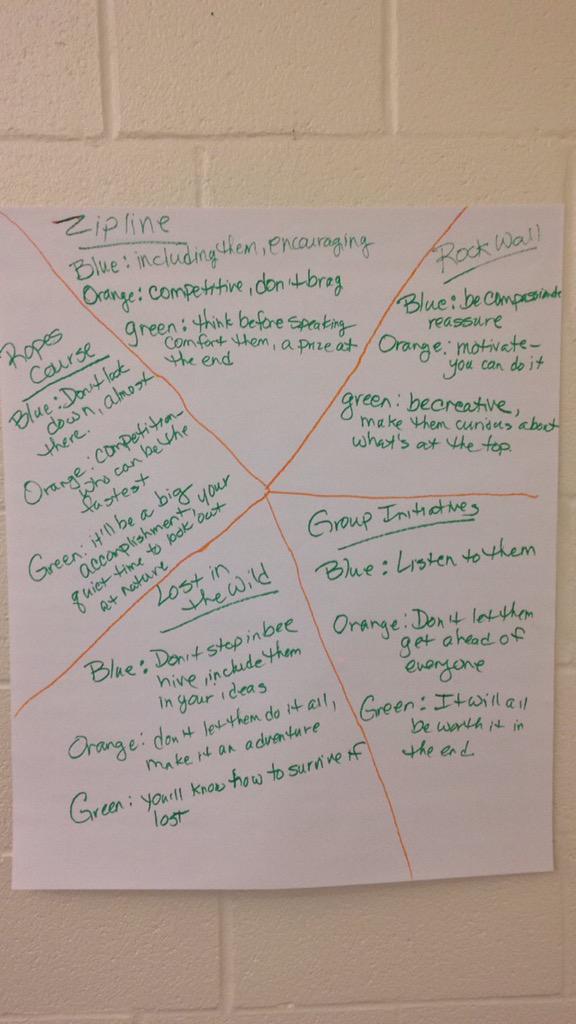 Zipline
Blue: including them, encouraging
Orange: competitive, don't brag
green: think before speaking
comfort them, a prize at
the end
Rock Wall
Blue: be compassionate
reassure
Orange: motivate-
you can do it
green: be creative,
make them curious about
what's at the top.
Ropes
Course
Blue: Don't look
down, almost
there.
Orange: competition-
who can be the
fastest
Green: it'll be a big
accomplishment, your
quiet time to look out
at nature
Group Initiatives
Blue: Listen to them
Orange: Don't let them
get ahead of
everyone
Green: It will all
be worth it in
the end
Lost in
the Wild
Blue: Don't step in bee
hive, include them
in your ideas
Orange: don't let them do it all,
make it an adventure
Green: you'll know how to survive if
lost